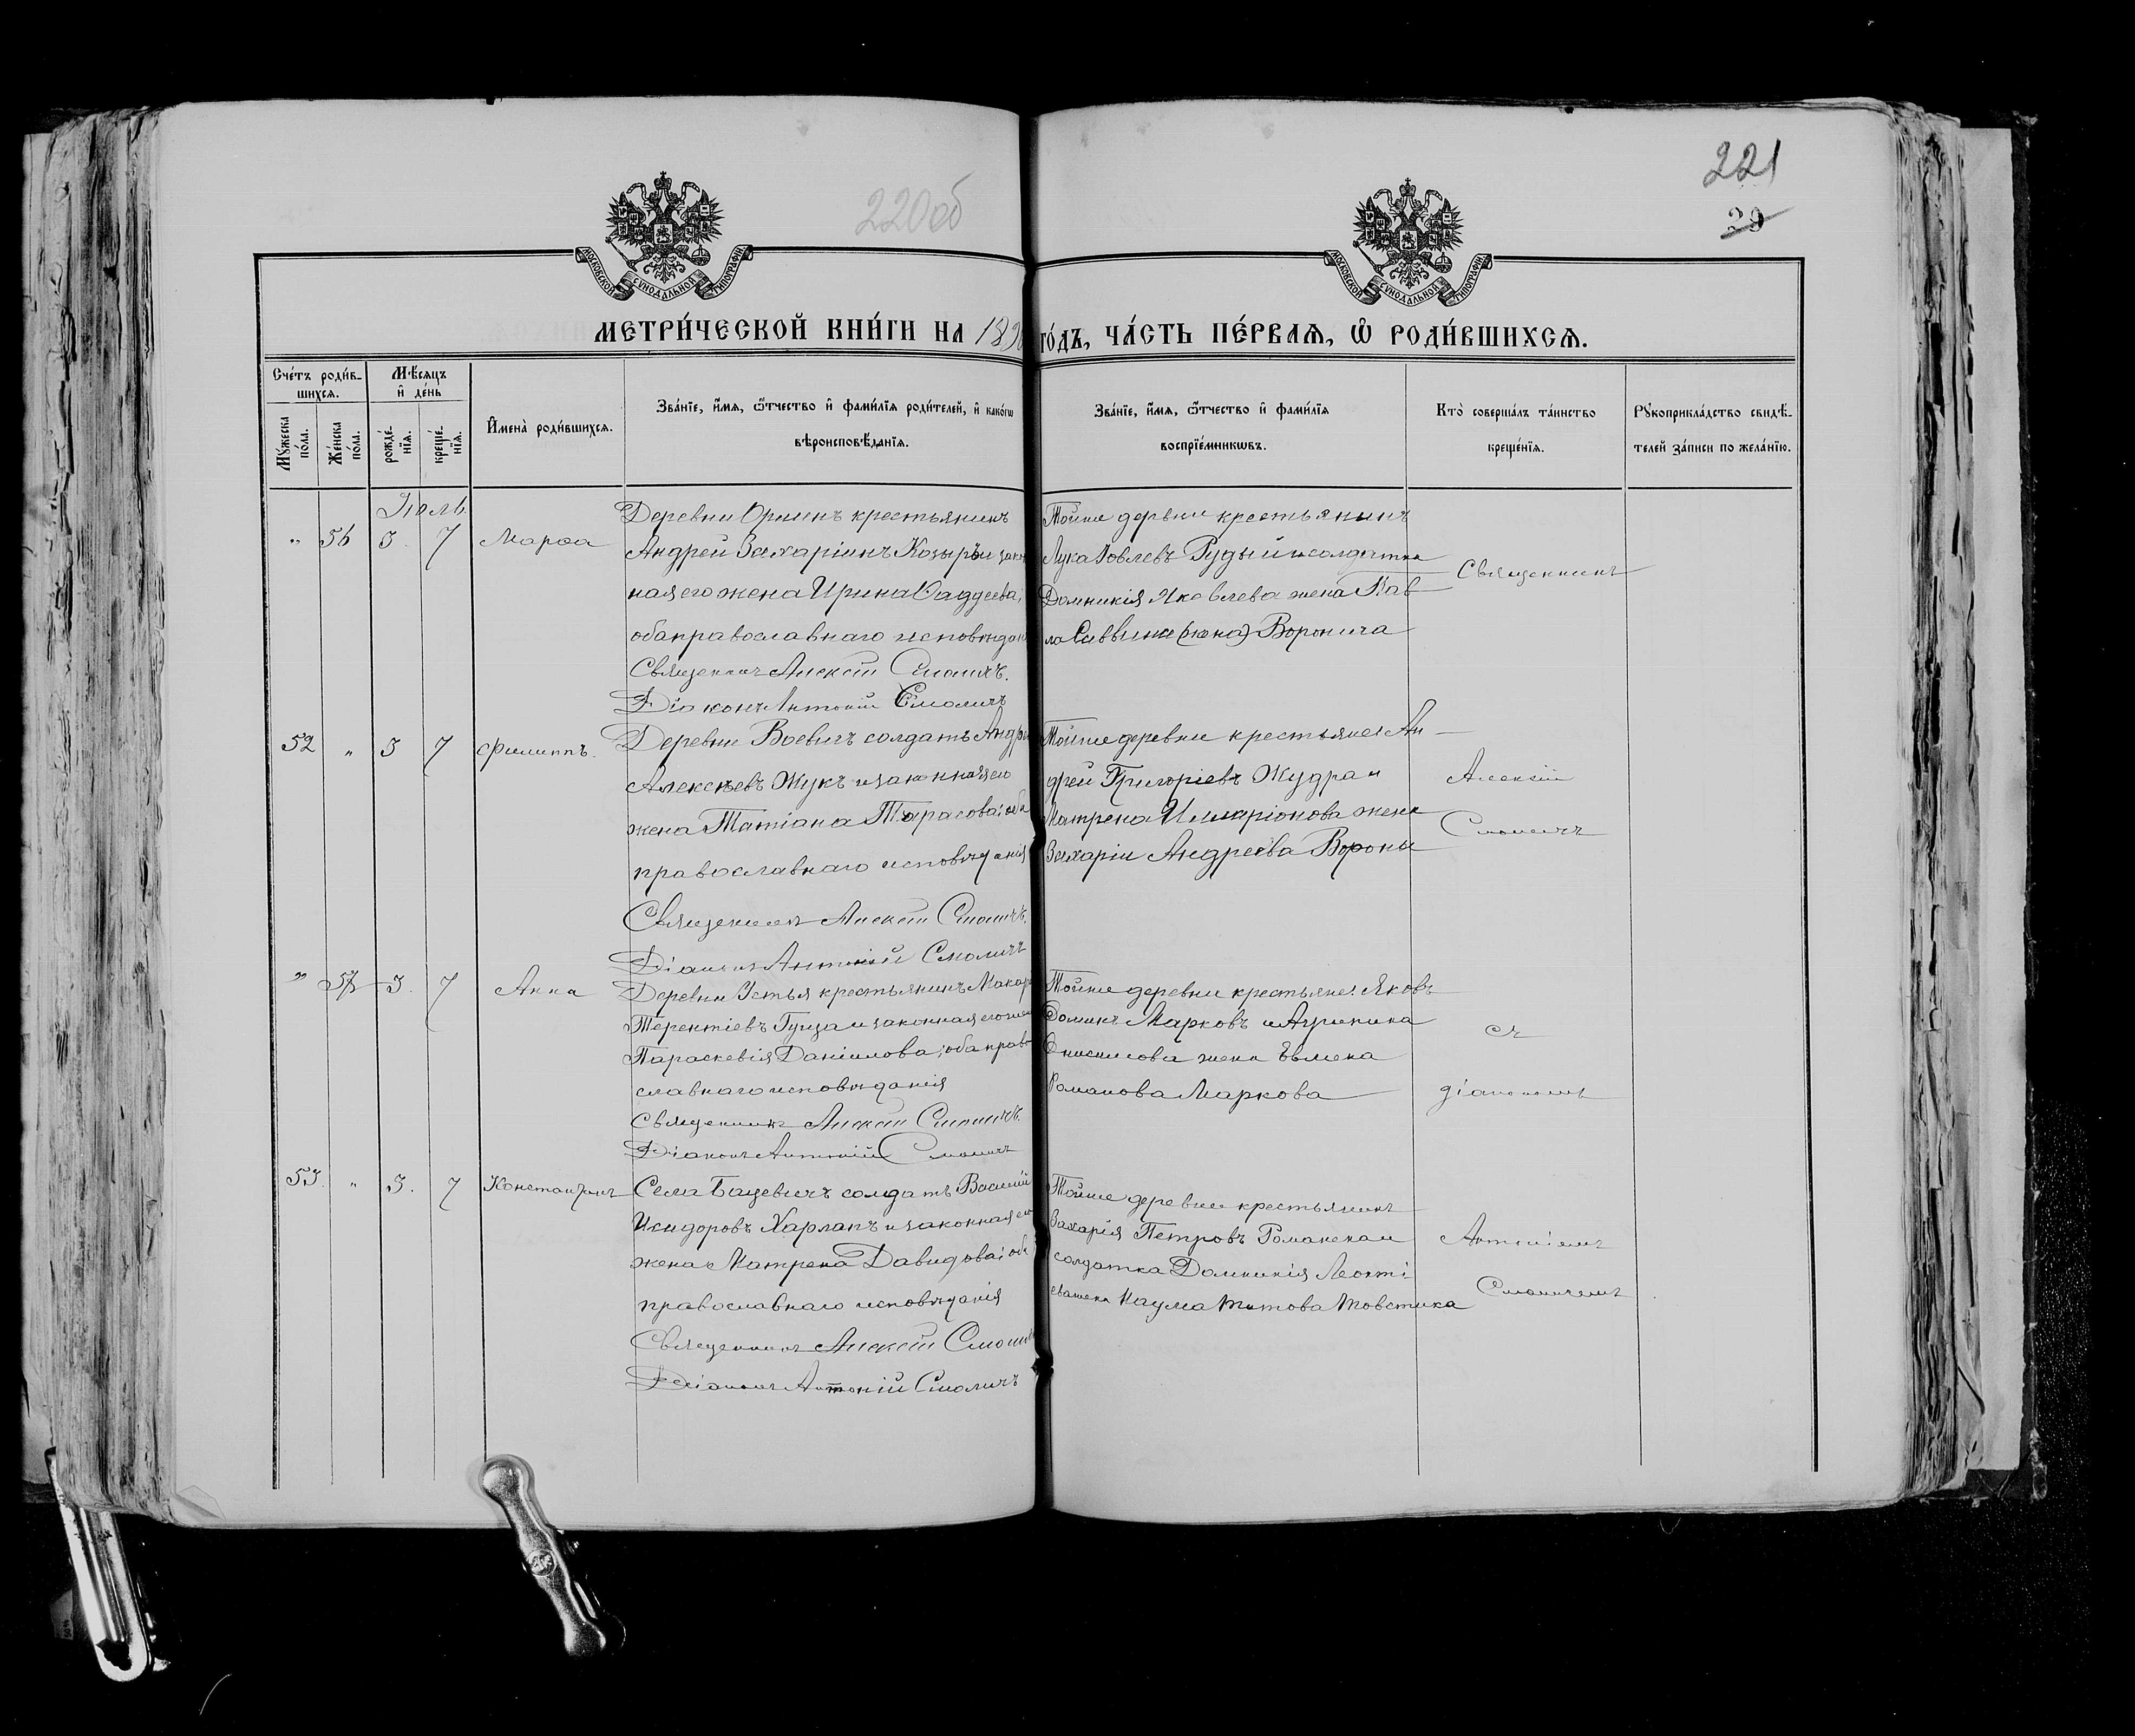 221
220об
29
МОСКОВСКОЙ СѴНОДАЛЬНОЙ ТИПОГРАФІИ
МОСКОВСКОЙ СѴНОДАЛЬНОЙ ТИПОГРАФІИ
МЕТРИ́ЧЕСКОЙ КНИ́ГИ НА 189 ГО́ДЪ, ЧА́СТЬ ПЕ́РВАѦ, Ѽ РОДИ́ВШИХСѦ.
Сче́тъ роди́в-
шихсѧ.
Мꙋ́жеска по́ла.
Же́нска по́ла.
Мѣ́сѧцъ
и҆ де́нь
рожде́-
нїѧ.
креще́-
нїѧ.
И҆мена̀ роди́вшихсѧ.
Зва́нїе, и҆́мѧ, ѻ҆́тчество и҆ фами́лїѧ роди́телей, и҆ како́гѡ
вѣроисповѣ́данїѧ.
Зва́нїе, и҆́мѧ, ѻ҆́тчество и҆ фами́лїѧ
воспрїе́мникѡвъ.
Кто̀ соверша́лъ та́инство
креще́нїѧ.
Рꙋкоприкла́дство свидѣ́-
телей за́писи по жела́нїю.
Іюль
„ 56 3 7 Марѳа
Деревни Оршекъ крестьянинъ
Андрей Захаріинъ Козыръ и закон
ная его жена Ирина Ѳаддеева;
оба православнаго исповѣдан
Священникъ Алексій Смоличъ.
Діаконъ Антоній Смоличъ
Тойже деревни крестьянинъ
Лука Іовлевъ Рудый и солдатка
Домникія Яковлева жена Пав
ла Саввина (жена) Воронича
Священникъ
52 „ 3 7 Филиппъ.
Деревни Воевичъ солдатъ Андрей
Алексѣевъ Жукъ и законная его
жена Татіана Тарасова; оба
православнаго исповѣданія
Священникъ Алексій Смоличъ.
Діаконъ Антоній Смоличъ
Тойже деревни крестьяне: Ан
дрей Григоріевъ Жудра и
Матрена Илларіонова жена
Захаріи Андреева Вороны
Алексій
Смоличъ
„ 57 3 7 Анна
Деревни Устья крестьянинъ Макар
Терентіевъ Гуща и законная его жен
Параскевія Даніилова; оба право
славнаго исповѣданія
Священникъ Алексій Смоличъ.
Діаконъ Антоній Смоличъ
Тойже деревни крестьяне: Яковъ
Домин. Марковъ и Агрипина
Онисимова жена
Романова Маркова
съ
діакономъ
53 „ 3. 7 Константинъ
Села Бацевичъ солдатъ Василій
Исидоровъ Харланъ и законная его
жена Матрена Давидова; оба
православнаго исповѣданія
Священникъ Алексій Смолич
Діаконъ Антоній Смоличъ
Тойже деревни крестьянинъ
Захарія Петровъ Романенка и
солдатка Домникія Леонті
ева жена Наума Титова Товстика
Антоніемъ
Смоличемъ